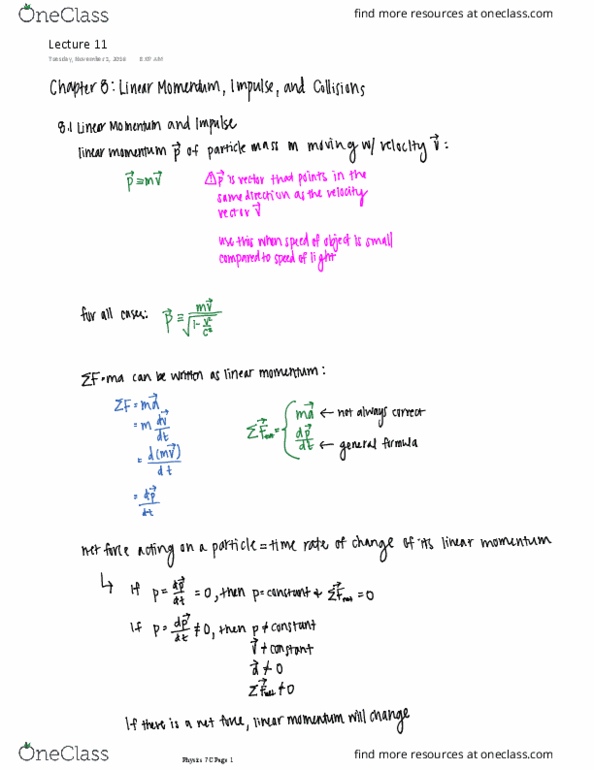 OneClass
find more resources at oneclass.com
Lecture 11
Tuesday, November 1, 2016 8:07 AM
Chapter 8: Linear Momentum, Impulse, and Collisions
8.1 Linear Momentum and Impulse
linear momentum p⃗ of particle mass m moving w/ velocity v⃗:
p⃗ ≡ mv⃗
⚠ p⃗ is vector that points in the
same direction as the velocity
vector v⃗
use this when speed of object is small
compared to speed of light
for all cases: p⃗ ≡ mv⃗ / √(1 - v²/c²)
ΣF=ma can be written as linear momentum:
ΣF = ma⃗
= m dv⃗/dt
= d(mv⃗)/dt
= dp⃗/dt
ΣF⃗net = { ma⃗ ← not always correct
dp⃗/dt ← general formula
net force acting on a particle = time rate of change of its linear momentum
↳ if p = dp⃗/dt = 0, then p = constant + ΣF⃗net = 0
if p = dp⃗/dt ≠ 0, then p ≠ constant
v⃗ ≠ constant
a⃗ ≠ 0
ΣF⃗net ≠ 0
If there is a net force, linear momentum will change
Physics 7C Page 1
OneClass
find more resources at oneclass.com